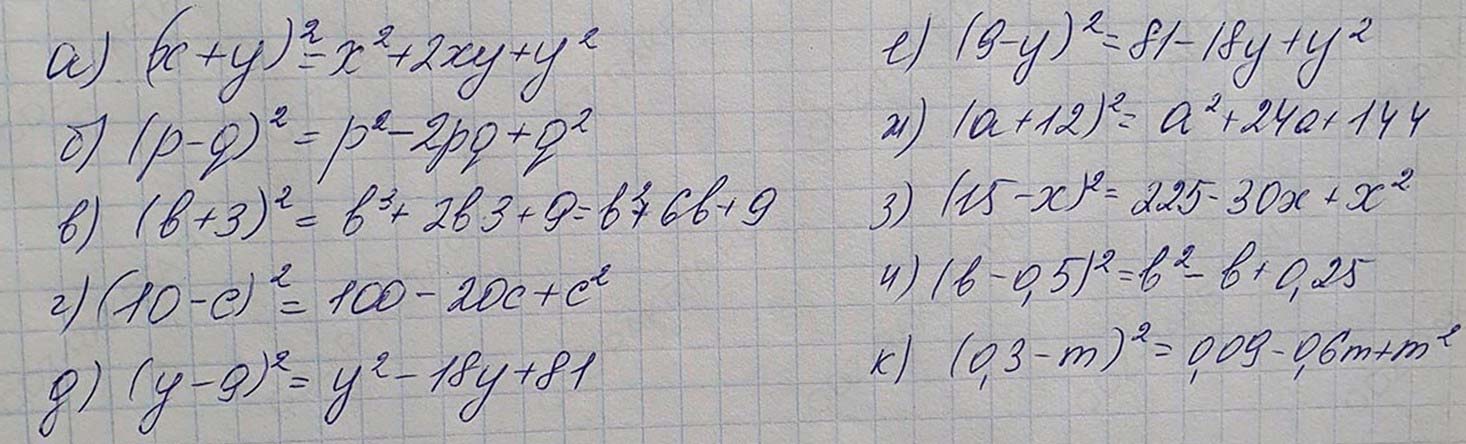 а) (x+y)²=x²+2xy+y²
б) (p-q)²=p²-2pq+q²
в) (b+3)²=b³+2b3+9=b²+6b+9
г) (10-c)²=100-20c+c²
д) (y-9)²=y²-18y+81
е) (9-y)²=81-18y+y²
ж) (a+12)²=a²+24a+144
з) (15-x)²=225-30x+x²
и) (b-0,5)²=b²-b+0,25
к) (0,3-m)²=0,09-0,6m+m²